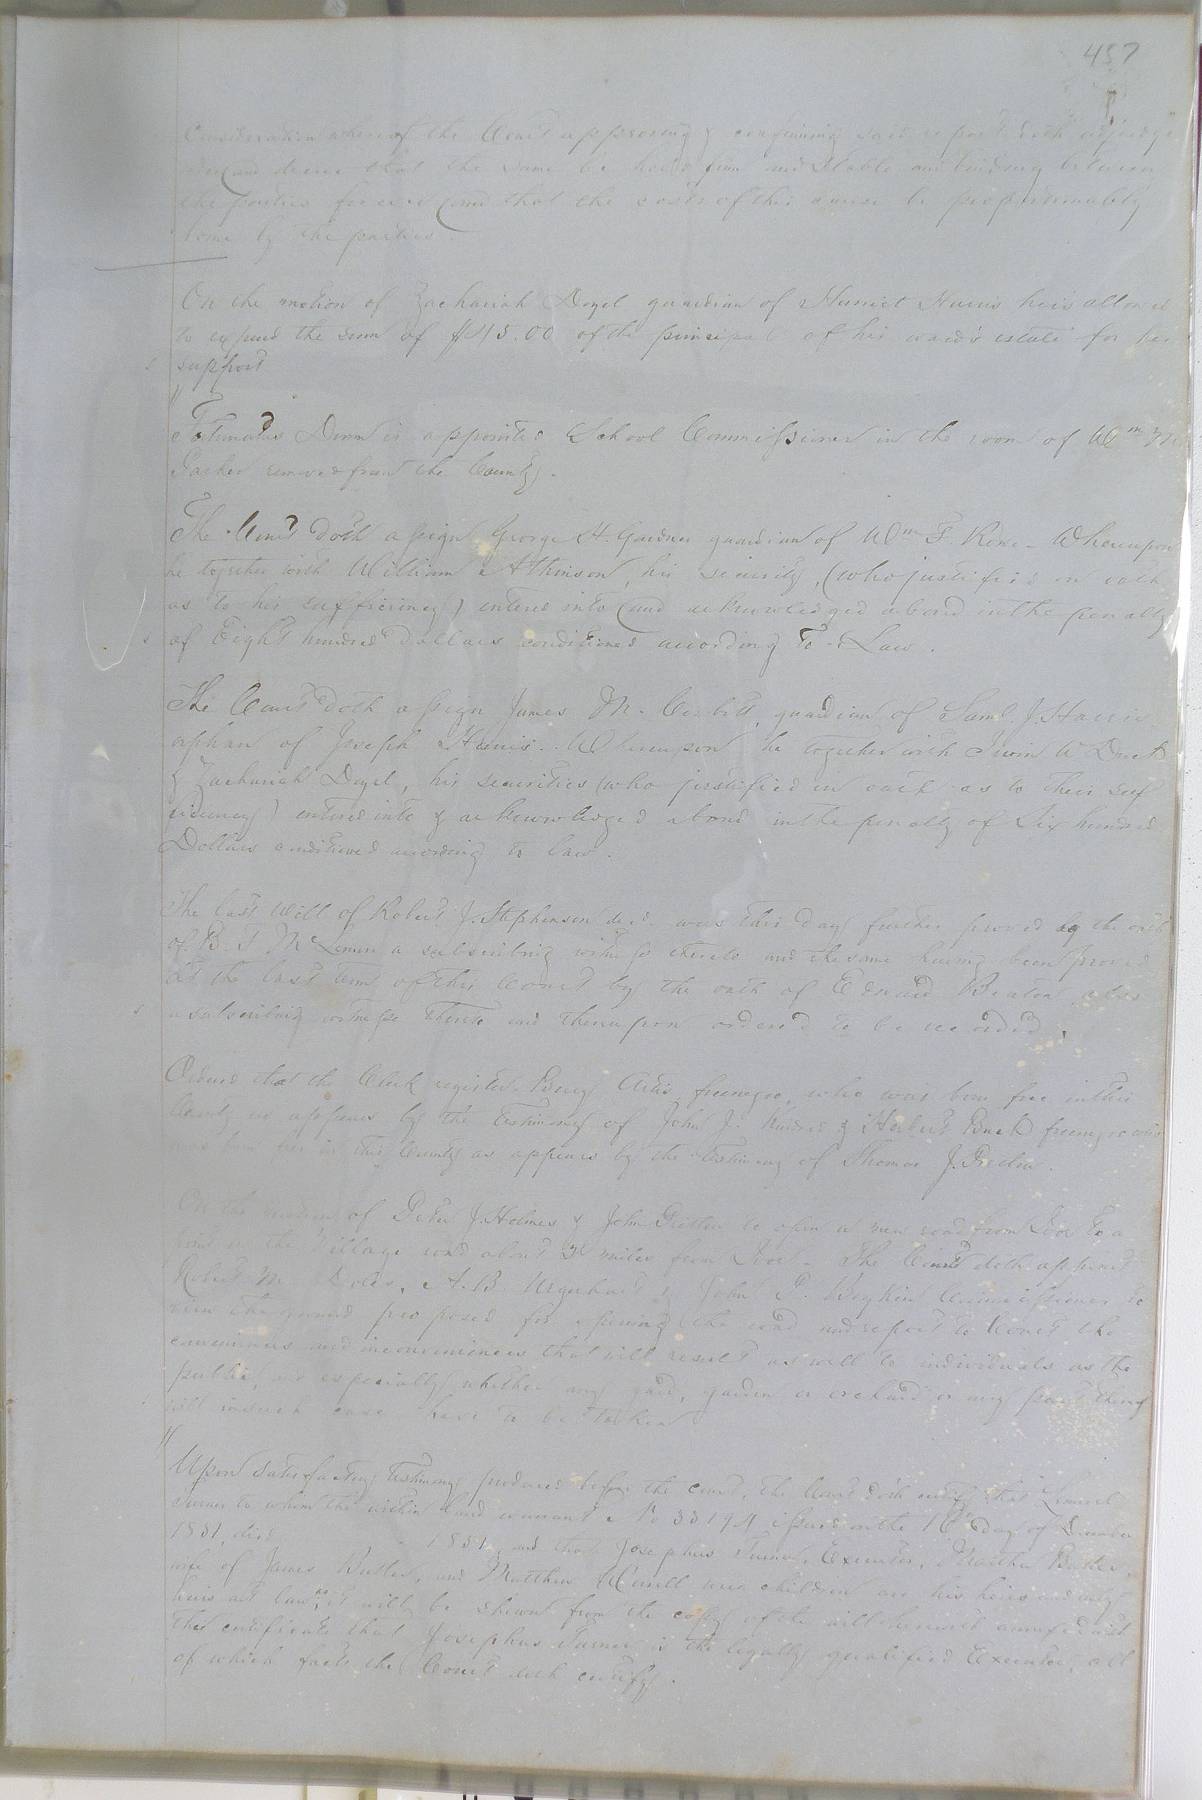 457
Consideration whereof the Court approving & confirming said report doth adjudge
order and decree that the same be held firm and stable and binding between
the parties forever and that the costs of this cause be proportionably
borne by the parties.
On the motion of Zachariah Doyel guardian of Harriet Harris he is allowed
to expend the sum of $45.00 of the principal of his ward's estate for her
support
Fortunatus Dunn is appointed School Commissioner in the room of Wm
removed from the County.
The Court doth assign George H. Gardner guardian of Wm F. Whereupon
he together with William Atkinson, his security, (who justified on oath
as to his sufficiency) entered into and acknowledged a bond in the penalty
of Eight hundred dollars conditioned according to Law.
The Court doth assign James M. Corbitt, guardian of Saml. J. Harris
orphan of Joseph Harris. Whereupon he together with Irwin W Duck
& Zachariah Doyel, his securities (who justified on oath as to their suf
ficiency) entered into & acknowledged a bond in the penalty of Six hundred
Dollars conditioned according to law.
The last Will of Robert J. Stephenson decd. was this day further proved by the oath
of B. T. McLemore a subscribing witness thereto and the same having been proved
at the last term of this Court by the oath of Edward Beaton also
a subscribing witness thereto and thereupon ordered to be recorded.
Ordered that the Clerk register Artis freenegro, who was born free in this
County as appears by the testimony of John J. Kindred & Herbert freenegro who
was born free in this County as appears by the testimony of Thomas J. Pretlow.
On the motion of Peter J. Holmes & John Pretlow to open a new road from Ivor to a
point on the Village road about 3 miles from Ivor. The Court doth appoint
Robert M. A. B. Urquhart & John P. Boykin Commissioners to
view the ground proposed for opening the road and report to Court the
conveniences and inconveniences that will result as well to individuals as the
public, and especially whether any yard, garden or orchard or any part thereof
will in such case have to be taken
Upon satisfactory testimony produced before the court, the Court doth certify that Lemuel
Turner to whom the within land warrant No 33194 issued on the 16th day of December
1851, died 1851, and that Josephus Turner, Executor, Martha Butler,
wife of James Butler, and Matthew Worrell whose children are his heirs and only
heirs at law, as it will be shewn from the copy of the will herewith annexed and
the certificate that Josephus Turner is the legally qualified Executor, all
of which facts the Court doth certify.